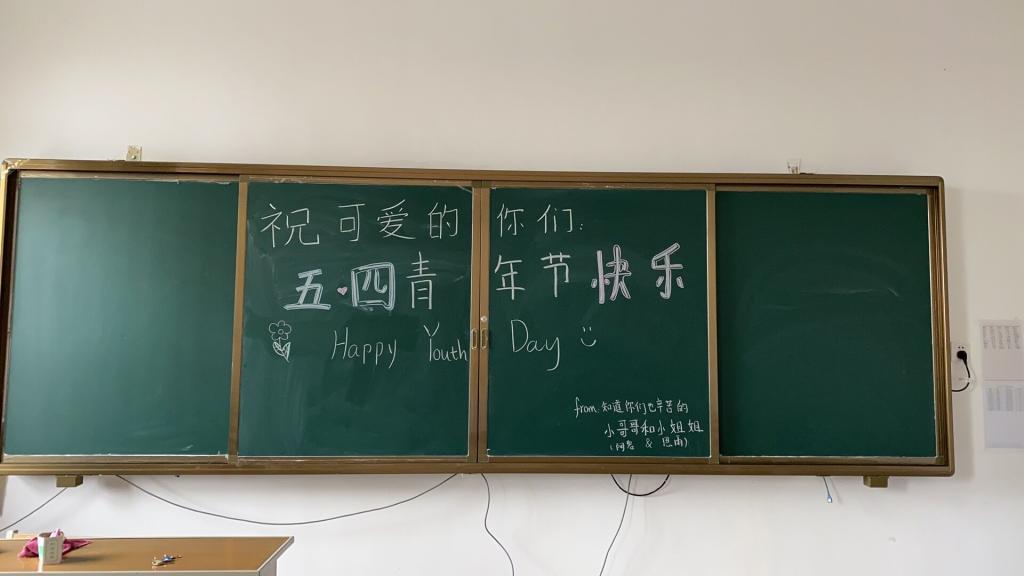 祝可爱的你们:
五·四青年节快乐
Happy Youth Day
from:知道你们也辛苦的
小哥哥和小姐姐